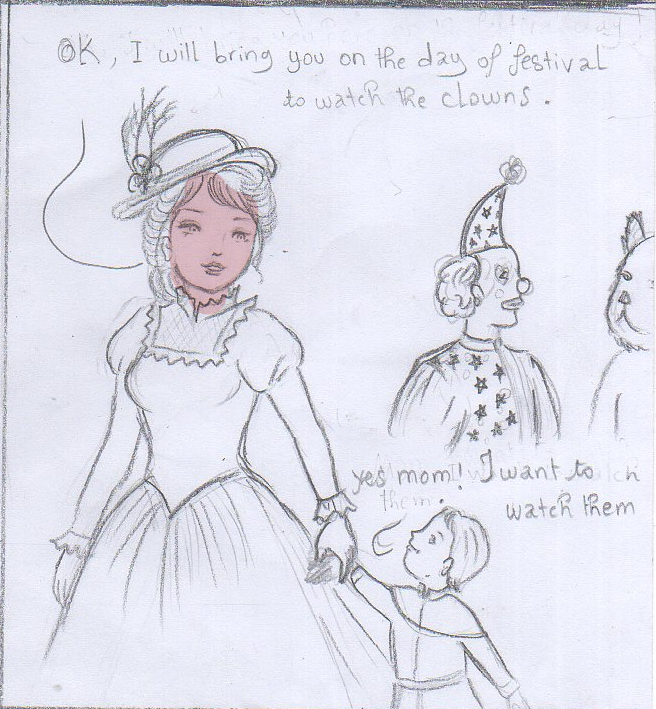 OK, I will bring you on the day of festival
to watch the clowns.
yes mom!! I want to
watch them
them.